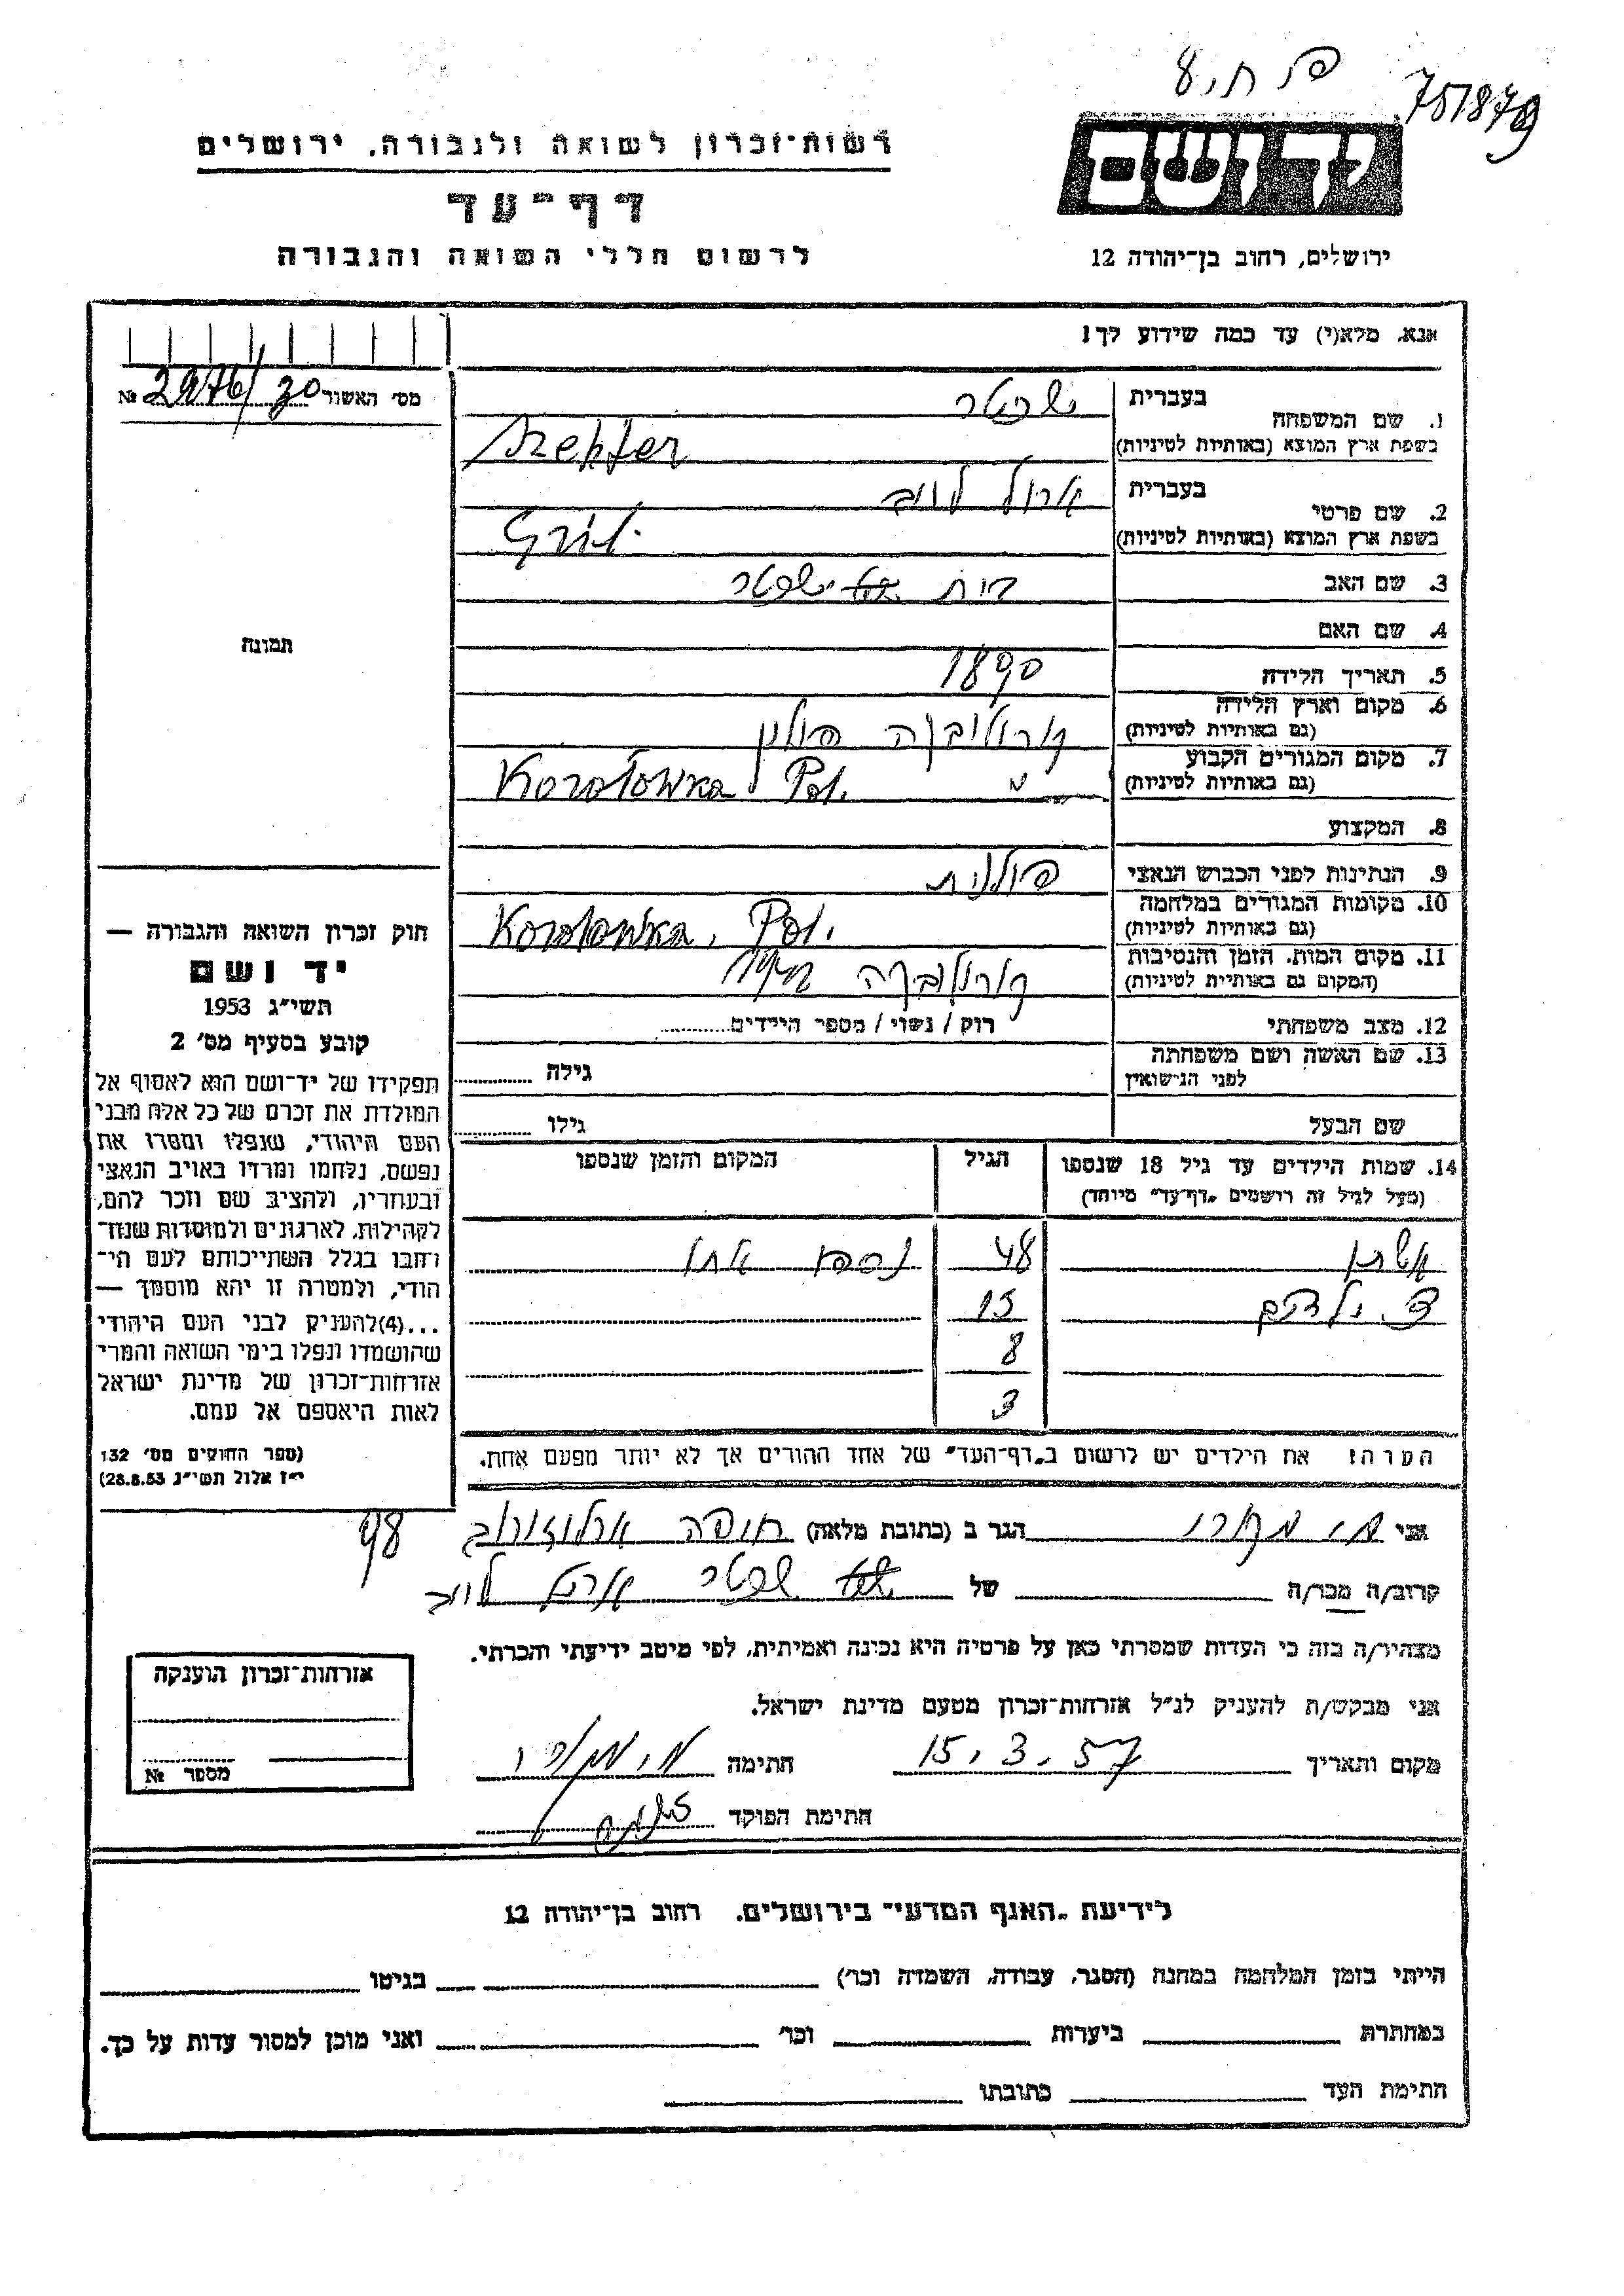 751878
יד ושם
רשות־זכרון לשואה ולגבורה, ירושלים
דף־עד
לרשום חללי השואה והגבורה
ירושלים, רחוב בן־יהודה 12
אנא, מלא(י) עד כמה שידוע לך!
מס׳ האשור 2976/30 №
1. שם המשפחה
בעברית
בשפת ארץ המוצא (באותיות לטיניות)
2. שם פרטי
בעברית
בשפת ארץ המוצא (באותיות לטיניות)
3. שם האב
4. שם האם
5. תאריך הלידה 1890
6. מקום וארץ הלידה קורולובקה פולין
(גם באותיות לטיניות)
7. מקום המגורים הקבוע Korolowka Pol.
(גם באותיות לטיניות)
8. המקצוע
9. הנתינות לפני הכבוש הנאצי פולנית
10. מקומות המגורים במלחמה Korolowka, Pol.
(גם באותיות לטיניות)
11. מקום המות, הזמן והנסיבות קורולובקה 1942
(המקום גם באותיית לטיניות)
12. מצב משפחתי רוק / נשוי / מספר הילדים
13. שם האשה ושם משפחתה
לפני הנישואין
גילה
שם הבעל גילו
14. שמות הילדים עד גיל 18 שנספו הגיל המקום והזמן שנספו
(מעל לגיל זה רושמים „דף־עד” מיוחד)
אשתו 48 נספו אתו
3 ילדים 15
8
3
הערה: את הילדים יש לרשום ב„דף־העד” של אחד ההורים אך לא יותר מפעם אחת.
תמונה
חוק זכרון השואה והגבורה —
יד ושם
תשי״ג 1953
קובע בסעיף מס׳ 2
תפקידו של יד־ושם הוא לאסוף אל
המולדת את זכרם של כל אלה מבני
העם היהודי, שנפלו ומסרו את
נפשם, נלחמו ומרדו באויב הנאצי
ובעוזריו, ולהציב שם וזכר להם,
לקהילות, לארגונים ולמוסדות שנח־
רחבו בגלל השתייכותם לעם הי־
הודי, ולמטרה זו יהא מוסמך —
...(4)להעניק לבני העם היהודי
שהושמדו ונפלו בימי השואה והמרי
אזרחות־זכרון של מדינת ישראל
לאות היאספם אל עמם.
(ספר החוקים מס׳ 132
י״ז אלול תשי״ג 28.8.53)
אני הגר ב (כתובת מלאה) חיפה ארלוזורוב 98
קרוב/ה מכר/ה של
מצהיר/ה בזה כי העדות שמסרתי כאן על פרטיה היא נכונה ואמיתית, לפי מיטב ידיעתי והכרתי.
אני מבקש/ת להעניק לנ״ל אזרחות־זכרון מטעם מדינת ישראל.
מקום ותאריך 15.3.57 חתימה
חתימת הפוקד
אזרחות־זכרון הוענקה
מספר №
לידיעת „האגף המדעי” בירושלים, רחוב בן־יהודה 12
הייתי בזמן המלחמה במחנה (הסגר, עבודה, השמדה וכו׳) בגיטו
במחתרת ביערות וכו׳ ואני מוכן למסור עדות על כך.
חתימת העד כתובתו